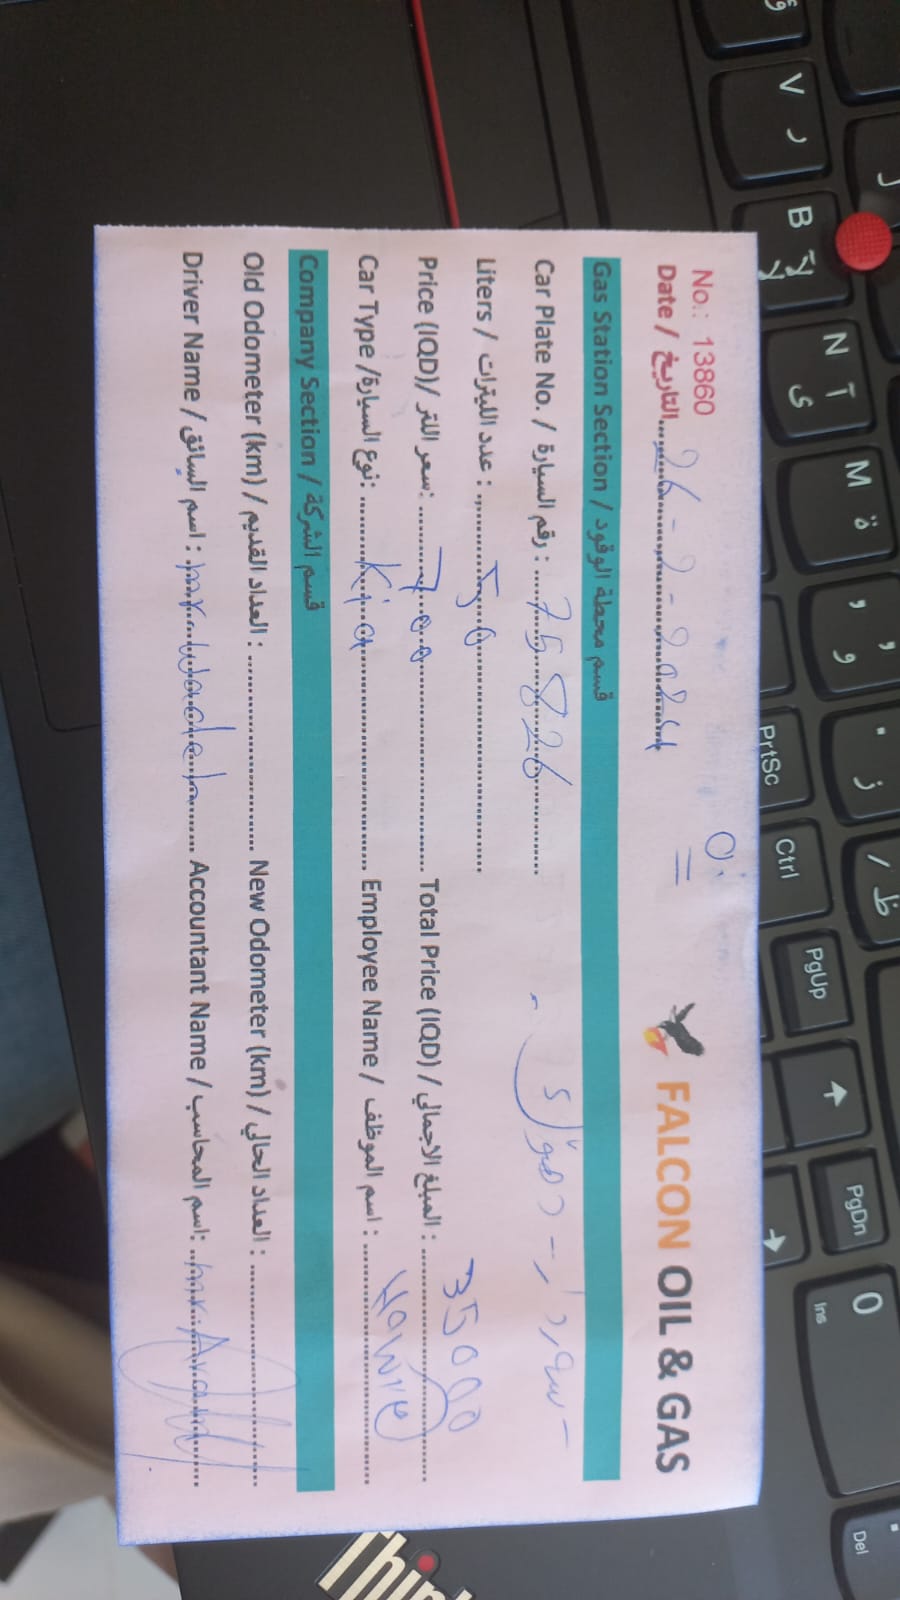 No.: 13860
FALCON OIL & GAS
Date / التاريخ 26-2-2024
Gas Station Section / قسم محطة الوقود
Car Plate No. / رقم السيارة : 75826
Liters / عدد الليترات : 50
Price (IQD)/ سعر اللتر: 700 Total Price (IQD) / المبلغ الاجمالي : 35000
Car Type /نوع السيارة: Kia Employee Name / اسم الموظف :
Company Section / قسم الشركة
Old Odometer (km) / العداد القديم : New Odometer (km) / العداد الحالي :
Driver Name / اسم السائق : mr. Accountant Name / اسم المحاسب: mr.
V ر
B لآ لا
N آ ى
M ة
, و
. ز
/ ظ
PrtSc
Ctrl
PgUp
PgDn
0 Ins
. Del
Thin